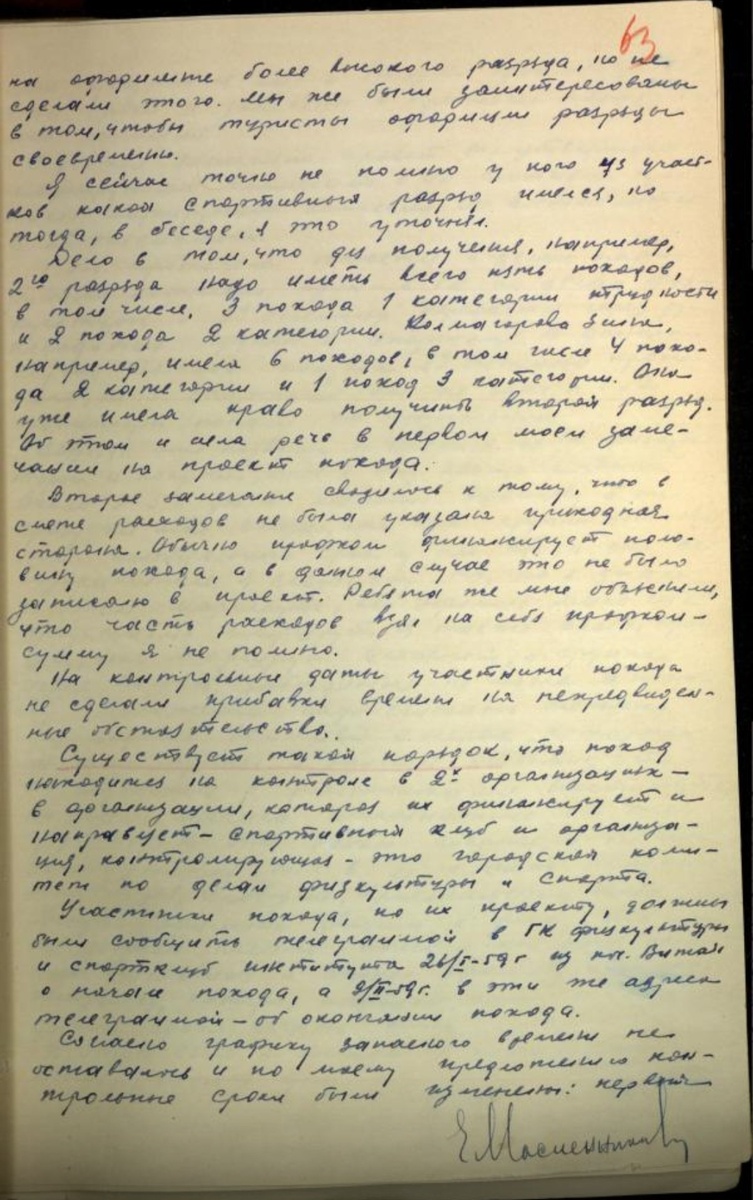 63
на оформление более высокого разряда, но не
сделали этого. Мы же были заинтересованы
в том, чтобы туристы оформили разряды
своевременно.
Я сейчас точно не помню у кого из участ-
ков какой спортивный разряд имелся, но
тогда, в беседе, я это уточнял.
Дело в том, что для получения, например,
2го разряда надо иметь всего пять походов,
в том числе, 3 похода 1 категории трудности
и 2 похода 2 категории. Колмагорова Зина,
например, имела 6 походов, в том числе 4 похо-
да 2 категории и 1 поход 3 категории. Она
уже имела право получить второй разряд.
Об этом и шла речь в первом моем заме-
чании на проект похода.
Второе замечание сводилось к тому, что в
смете расходов не была указана приходная
сторона. Обычно профком финансирует поло-
вину похода, а в данном случае это не было
записано в проект. Ребята же мне объяснили,
что часть расходов взял на себя профком-
сумму я не помню.
На контрольные даты участники похода
не сделали прибавки времени на непредвиден-
ные обстоятельства.
Существует такой порядок, что поход
находится на контроле в 2х организациях-
в организации, которая их финансирует и
направляет - спортивный клуб и организа-
ция, контролирующая - это городской коми-
тет по делам физкультуры и спорта.
Участники похода, по их проекту, должны
были сообщить телеграммой в ГК физкультуры
и спортклуб института 26/I-59г из пос. Вижай
о начале похода, а 9/II-59г. в эти же адреса
телеграммой - об окончании похода.
Согласно графику запасного времени не
оставалось и по моему предложению кон-
трольные сроки были изменены: первый
Е Масленников